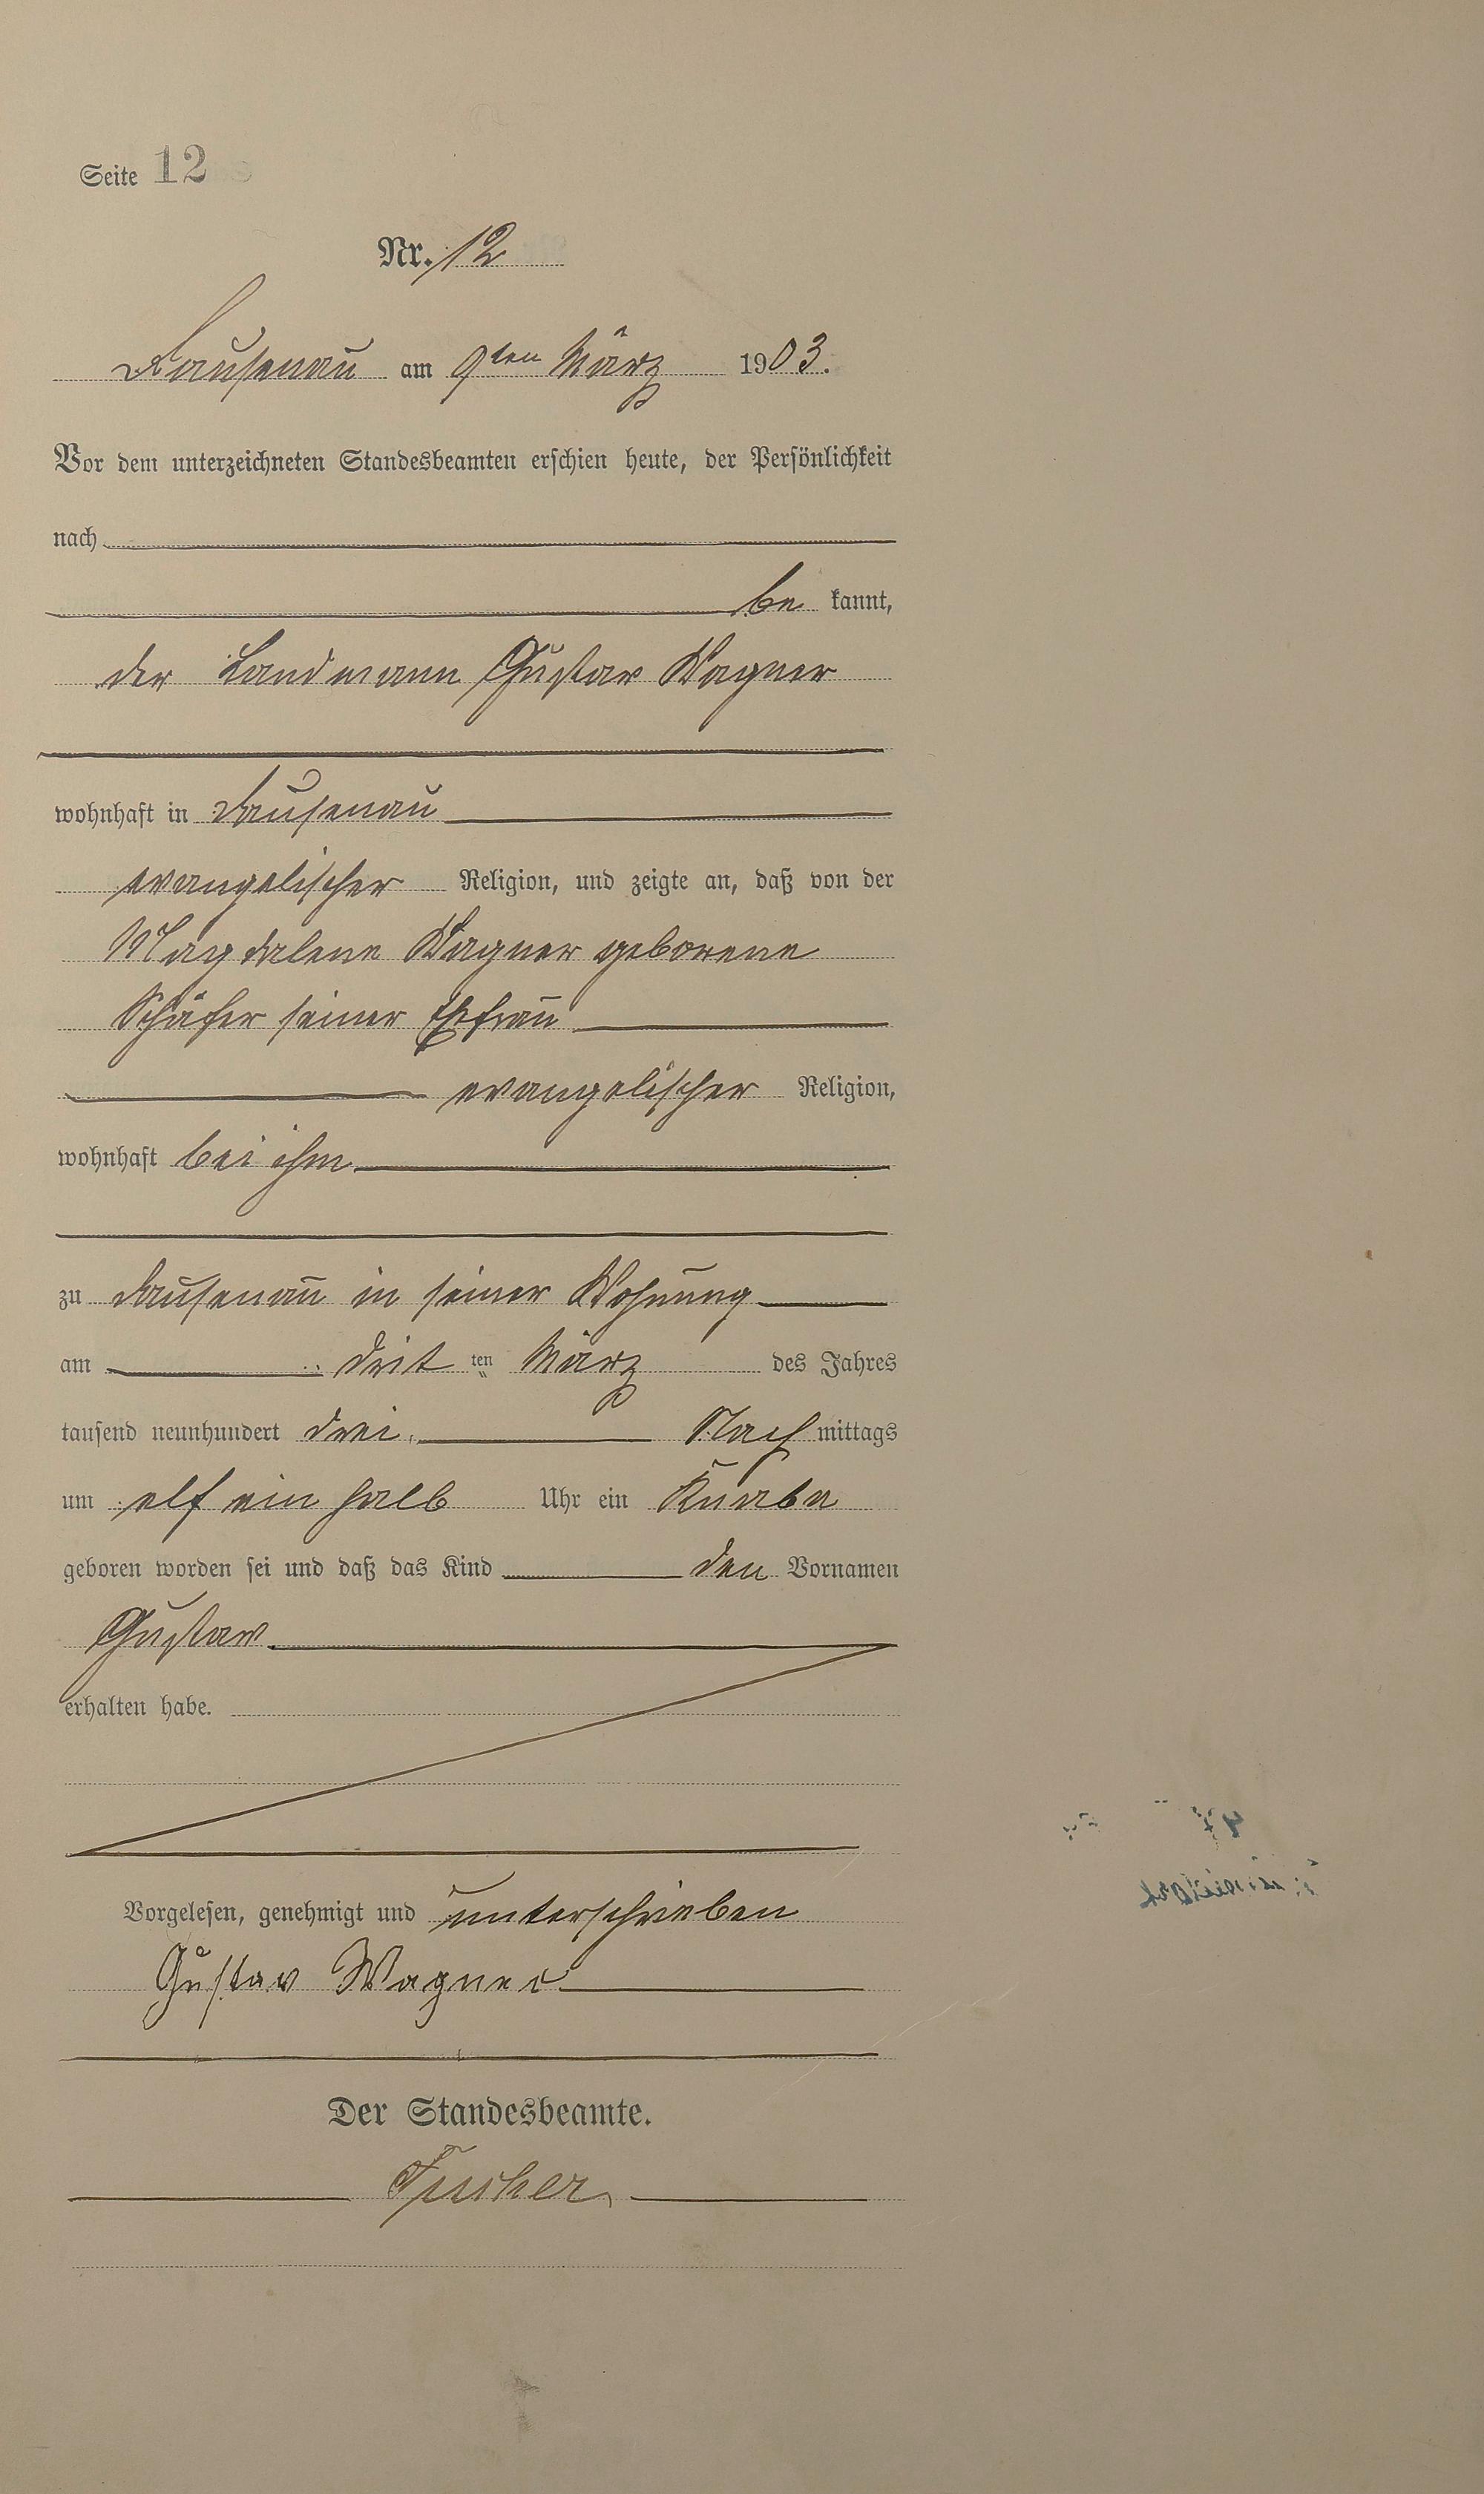 Seite 12
Nr. 12
Dausenau am 9ten März 1903.
Vor dem unterzeichneten Standesbeamten erschien heute, der Persönlichkeit
nach
be kannt,
der Landmann Gustav Wagner
wohnhaft in Dausenau
evangelischer Religion, und zeigte an, daß von der
Magdalene Wagner geborene
Schäfer seiner Ehefrau
evangelischer Religion,
wohnhaft bei ihm
zu Dausenau in seiner Wohnung
am drit ten März des Jahres
tausend neunhundert drei, Nach mittags
um elf ein halb Uhr ein Knabe
geboren worden sei und daß das Kind den Vornamen
Gustav
erhalten habe.
Vorgelesen, genehmigt und unterschrieben
Gustav Wagner
Der Standesbeamte.